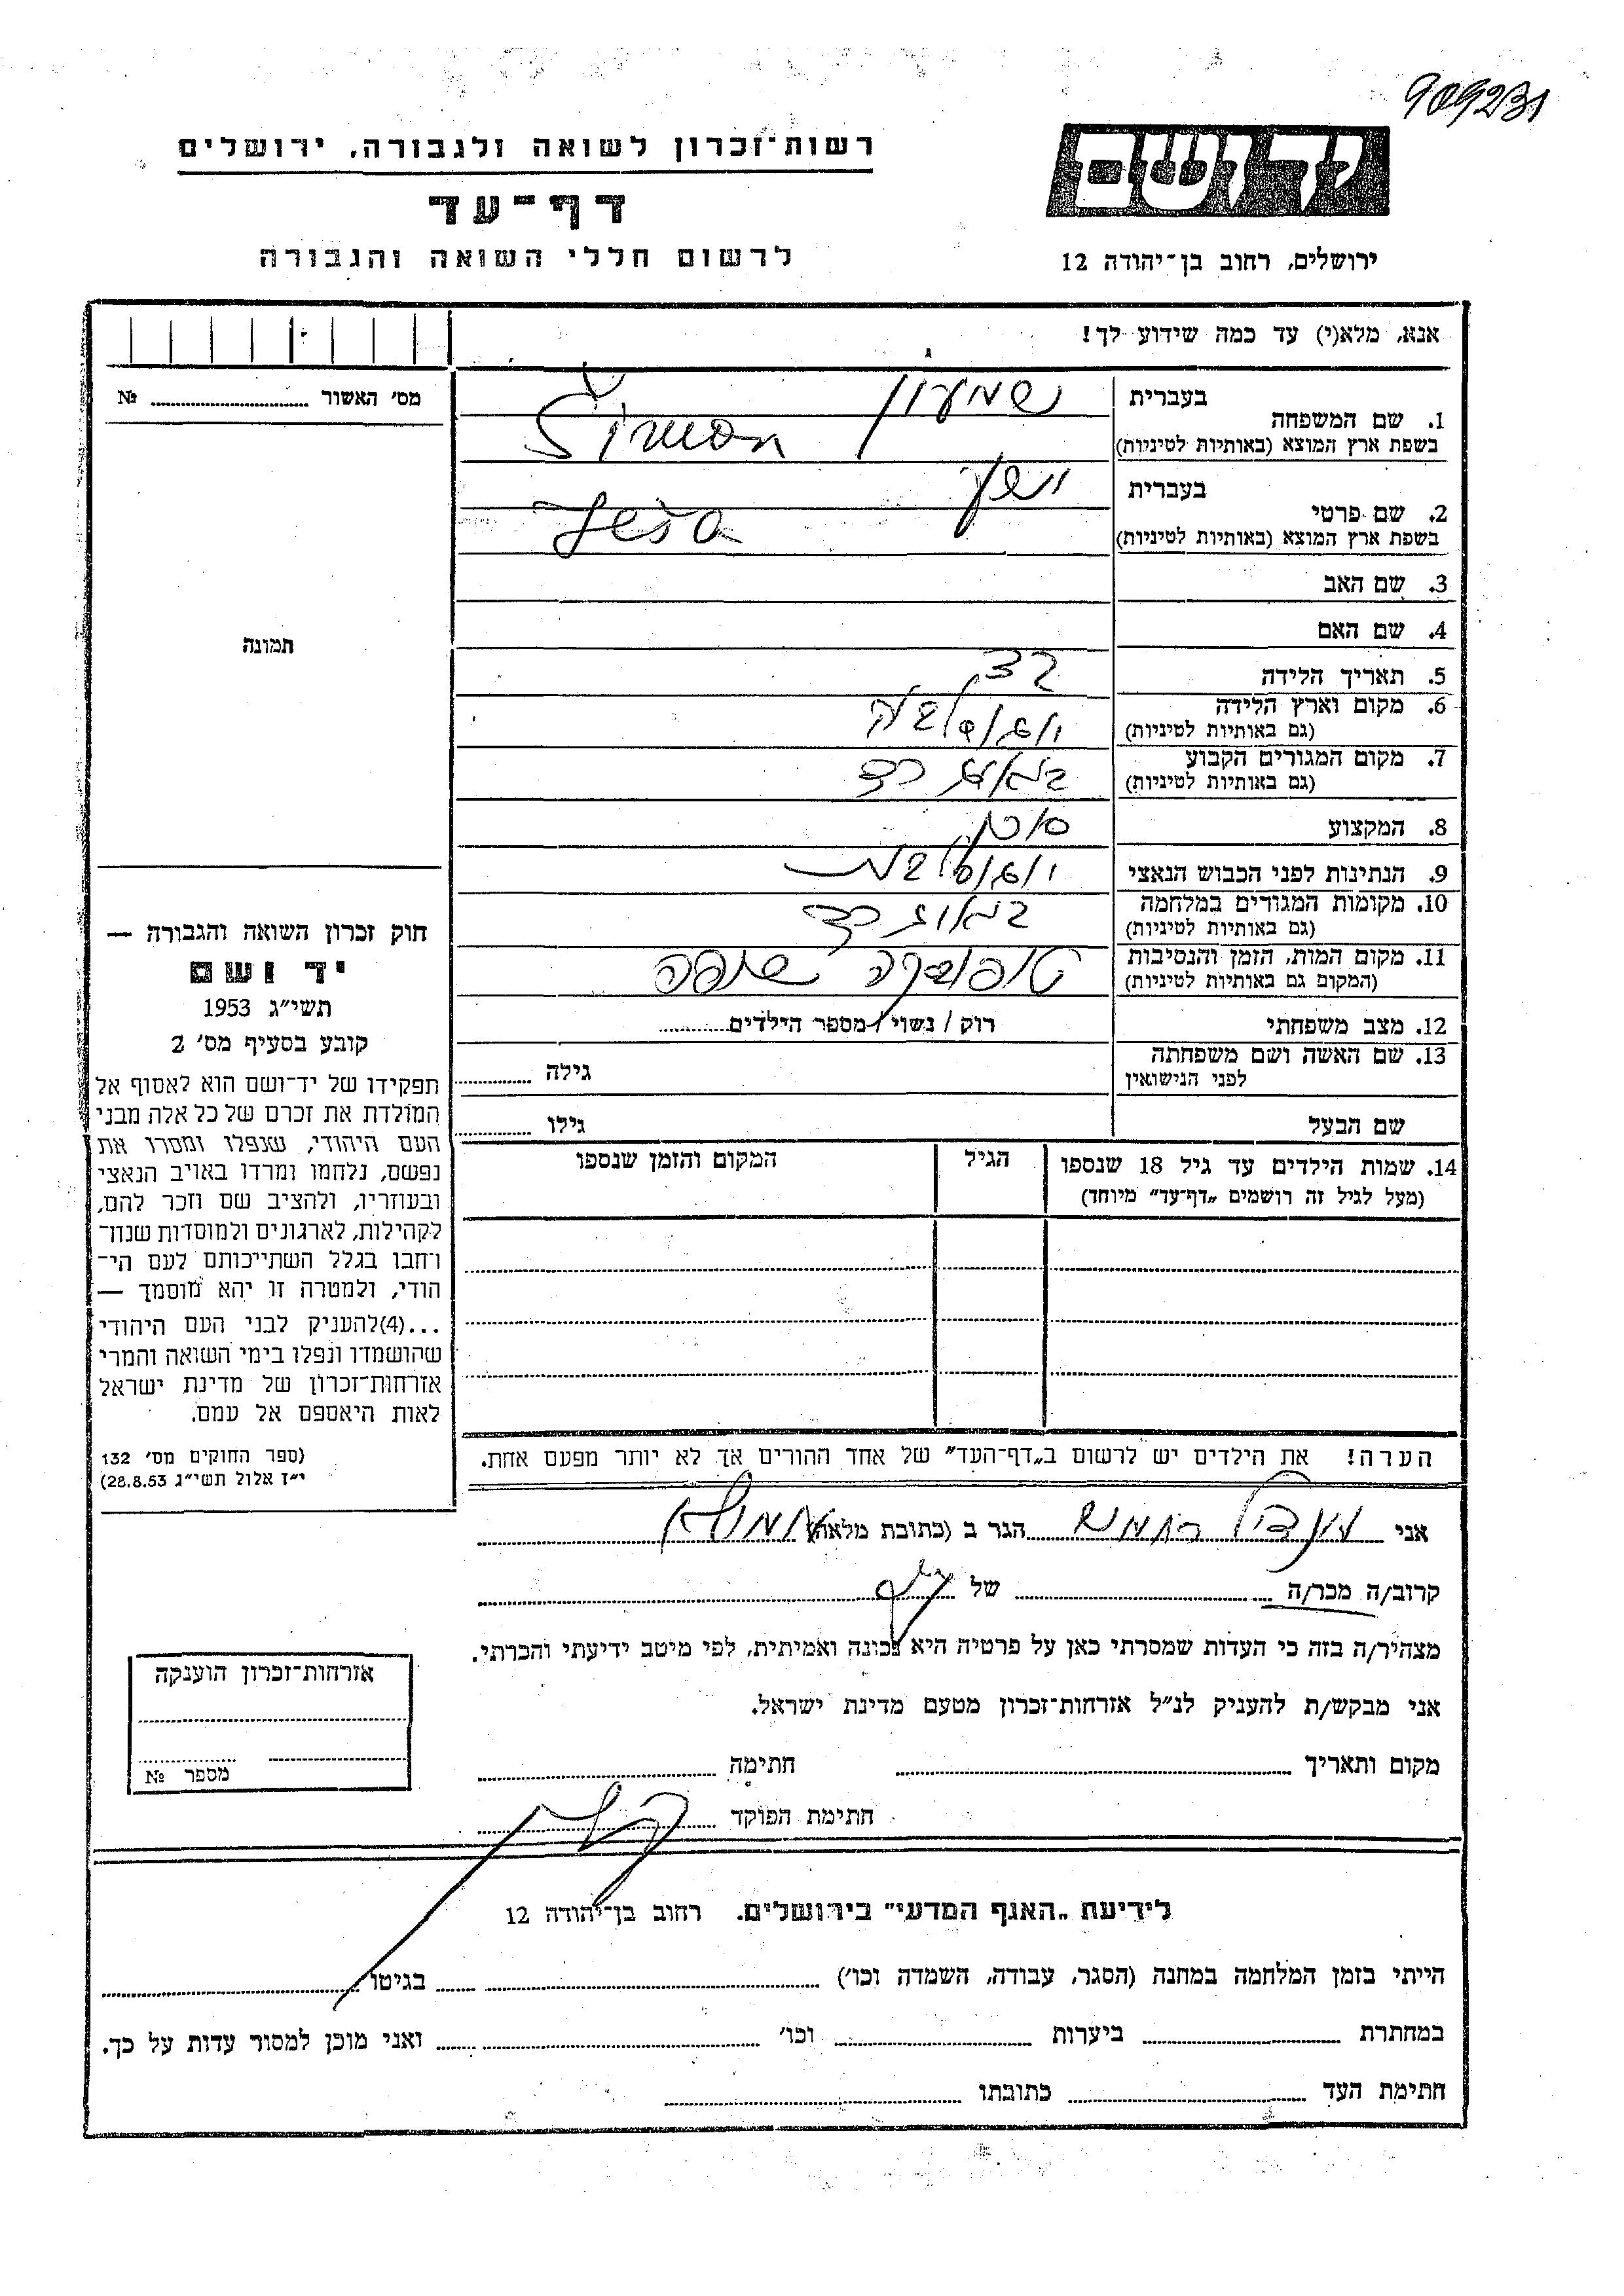 909231
רשות־זכרון לשואה ולגבורה, ירושלים
יד ושם
דף־עד
לרשום חללי השואה והגבורה
ירושלים, רחוב בן־יהודה 12
אנא, מלא(י) עד כמה שידוע לך!
מס׳ האשור ........ №
תמונה
1. שם המשפחה
בעברית שמעון
בשפת ארץ המוצא (באותיות לטיניות)
2. שם פרטי
בעברית
בשפת ארץ המוצא (באותיות לטיניות) Ješa
3. שם האב
4. שם האם
5. תאריך הלידה
6. מקום וארץ הלידה יוגוסלביה
(גם באותיות לטיניות)
7. מקום המגורים הקבוע
(גם באותיות לטיניות)
8. המקצוע סוכן
9. הנתינות לפני הכבוש הנאצי יוגוסלבית
10. מקומות המגורים במלחמה
(גם באותיות לטיניות)
11. מקום המות, הזמן והנסיבות טופובסקה שופה
(המקום גם באותיות לטיניות)
12. מצב משפחתי רוק / נשוי / מספר הילדים........
13. שם האשה ושם משפחתה גילה ........
לפני הנישואין
שם הבעל גילו ........
14. שמות הילדים עד גיל 18 שנספו הגיל המקום והזמן שנספו
(מעל לגיל זה רושמים „דף־עד״ מיוחד)
הערה! את הילדים יש לרשום ב„דף־העד״ של אחד ההורים אך לא יותר מפעם אחת.
חוק זכרון השואה והגבורה —
יד ושם
תשי״ג 1953
קובע בסעיף מס׳ 2
תפקידו של יד־ושם הוא לאסוף אל
המולדת את זכרם של כל אלה מבני
העם היהודי, שנפלו ומסרו את
נפשם, נלחמו ומרדו באויב הנאצי
ובעוזריו, ולהציב שם וזכר להם,
לקהילות, לארגונים ולמוסדות שנח־
רחבו בגלל השתייכותם לעם הי־
הודי, ולמטרה זו יהא מוסמך —
...(4)להעניק לבני העם היהודי
שהושמדו ונפלו בימי השואה והמרי
אזרחות־זכרון של מדינת ישראל
לאות היאספם אל עמם.
(ספר החוקים מס׳ 132
י״ז אלול תשי״ג 28.8.53)
אני ........ הגר ב (כתובת מלאה) ........
קרוב/ה מכר/ה ........ של ........
מצהיר/ה בזה כי העדות שמסרתי כאן על פרטיה היא נכונה ואמיתית, לפי מיטב ידיעתי והכרתי.
אני מבקש/ת להעניק לנ״ל אזרחות־זכרון מטעם מדינת ישראל.
מקום ותאריך ........ חתימה ........
חתימת הפוקד ........
אזרחות־זכרון הוענקה
מספר №
לידיעת „האגף המדעי״ בירושלים. רחוב בן־יהודה 12
הייתי בזמן המלחמה במחנה (הסגר, עבודה, השמדה וכו׳) ........ בגיטו ........
במחתרת ........ ביערות ........ וכו׳ ........ ואני מוכן למסור עדות על כך.
חתימת העד ........ כתובתו ........